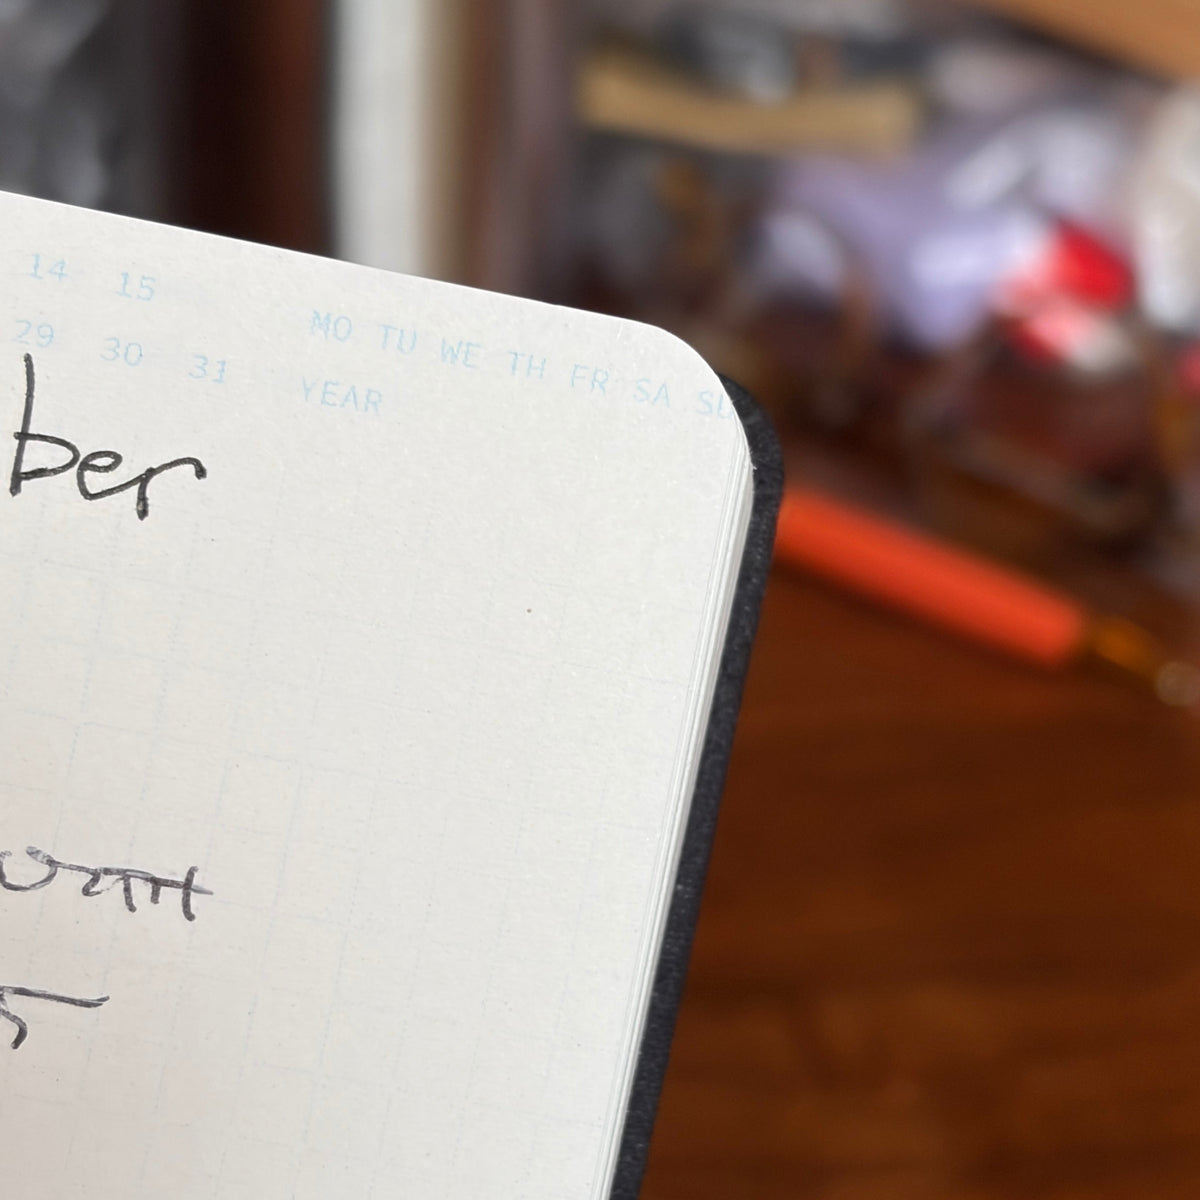 14 15 MO TU WE TH FR SA SU
29 30 31 YEAR
ber